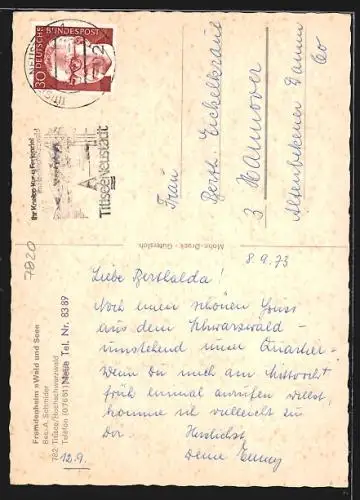 30
DEUTSCHE BUNDESPOST
Ihr Kneipp-Kur- u. Ferienziel
Titisee-Neustadt
Frau
Berth. Eickelkraut
3 Hannover
Altenbekener Damm
60
7820
Mohn-Druck · Gütersloh
Fremdenheim »Wald und See«
Bes.: A. Schmider
782 Titisee/Hochschwarzwald
Telefon (07651) Neue Tel. Nr. 8389
12.9.
8.9.73
Liebe Berthalda!
Noch einen schönen Gruss
aus dem Schwarzwald –
umstehend unser Quartier.
Wenn Du mich am Mittwoch
früh einmal anrufen willst,
komme ich vielleicht zu
Dir. Herzlichst
Deine Emmy